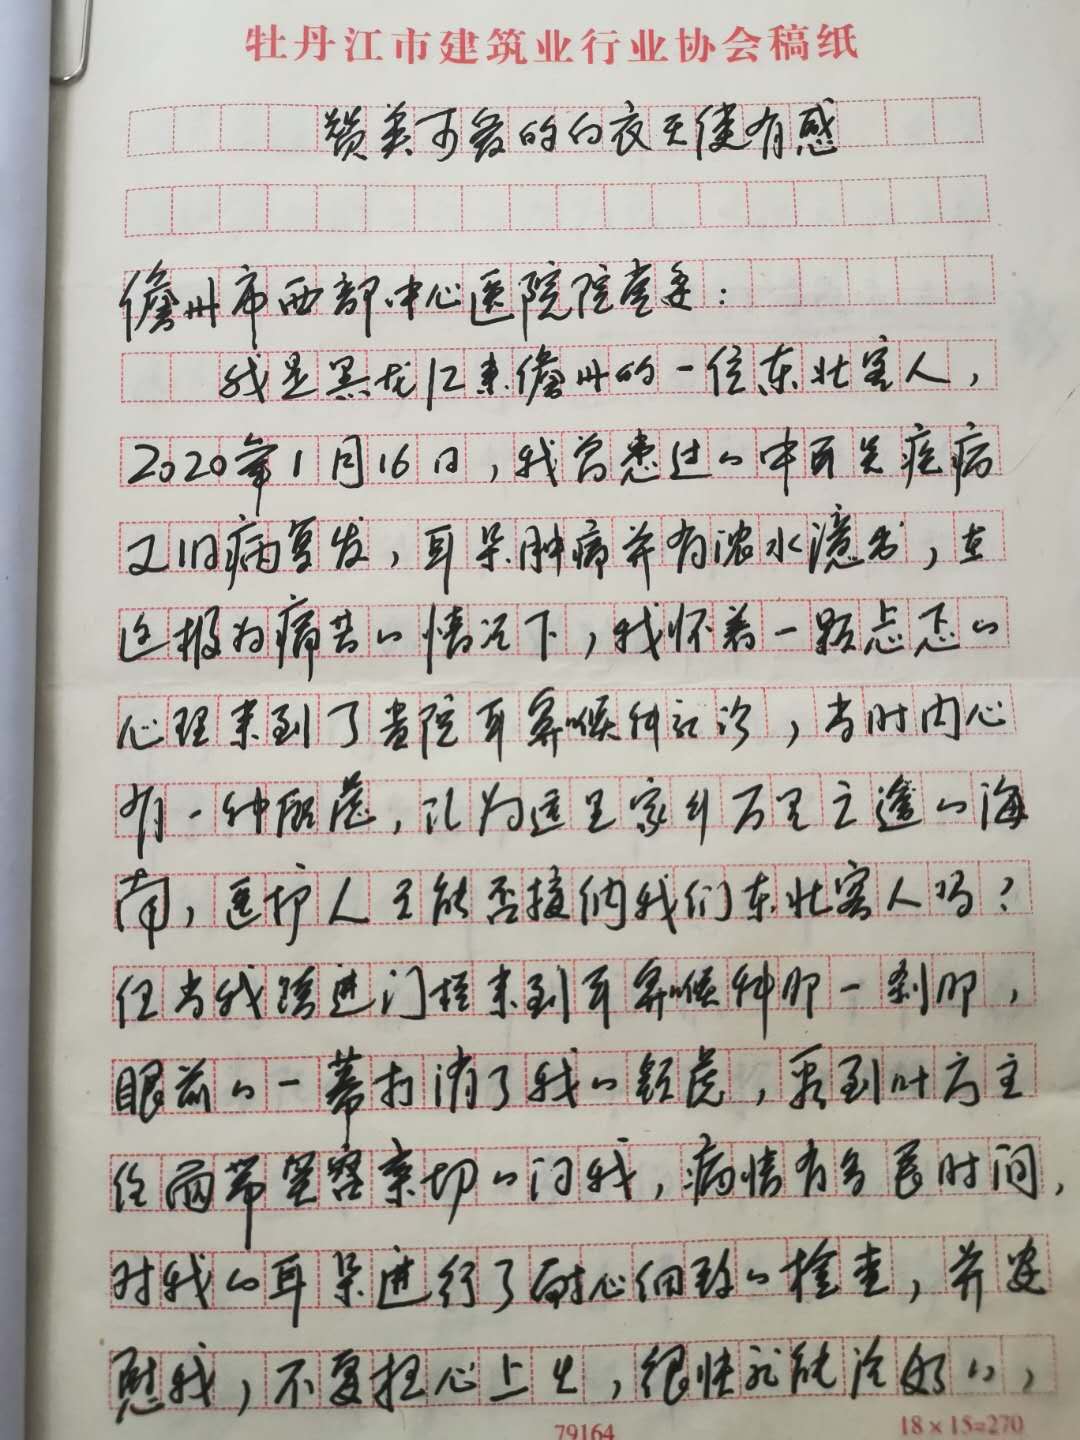 牡丹江市建筑业行业协会稿纸
赞美可爱的白衣天使有感
儋州市西部中心医院院党委：
我是黑龙江来儋州的一位东北客人，
2020年1月16日，我曾患过的中耳炎疾病
又旧病复发，耳朵肿痛并有浓水溢出，在
这极为痛苦的情况下，我怀着一颗忐忑的
心理来到了贵院耳鼻喉科就诊，当时内心
有一种顾虑，认为这里家乡万里之遥的海
南，医护人员能否接纳我们东北客人吗？
但当我跨进门槛来到耳鼻喉科那一刹那，
眼前的一幕打消了我的顾虑，看到叶方主
任面带笑容亲切的问我，病情有多长时间，
对我的耳朵进行了耐心细致的检查，并安
慰我，不要担心上火，很快就能治好的，
79164
18×15=270